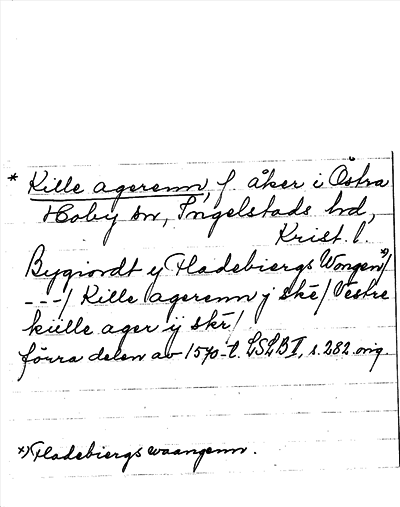 * Kille agerenn, f. åker i Östra
Hoby sn, Ingelstads hd,
Krist. l.
Bygiordt y Fladebiergs Wongen *)/
---/ Kille agerenn j skē/ Vestre
kiille ager ij skē/
förra delen av 1570-t. LSLB II, s. 282 orig.
*) Fladebiergs waangenn.